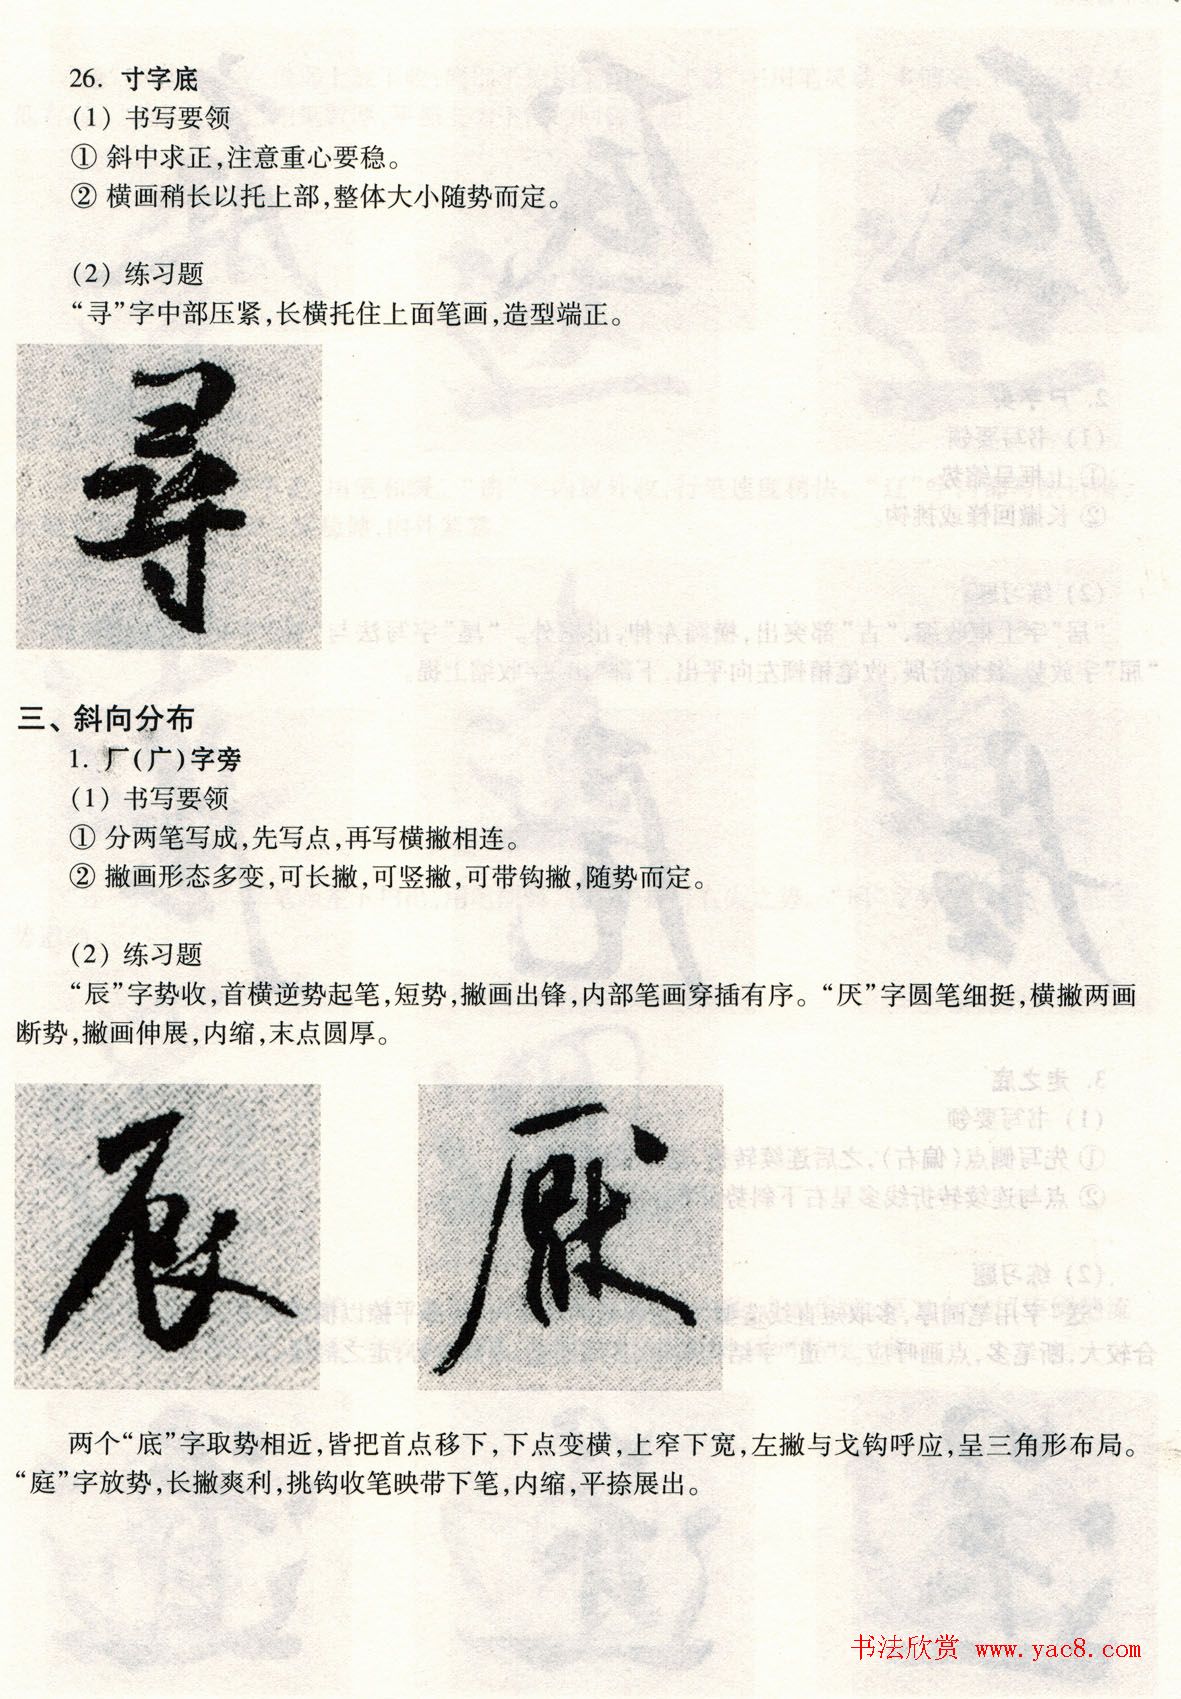 26. 寸字底
(1) 书写要领
① 斜中求正,注意重心要稳。
② 横画稍长以托上部,整体大小随势而定。
(2) 练习题
“寻”字中部压紧,长横托住上面笔画,造型端正。
尋
三、斜向分布
1. 厂(广)字旁
(1) 书写要领
① 分两笔写成,先写点,再写横撇相连。
② 撇画形态多变,可长撇,可竖撇,可带钩撇,随势而定。
(2) 练习题
“辰”字势收,首横逆势起笔,短势,撇画出锋,内部笔画穿插有序。“厌”字圆笔细挺,横撇两画
断势,撇画伸展,内缩,末点圆厚。
辰 厭
两个“底”字取势相近,皆把首点移下,下点变横,上窄下宽,左撇与戈钩呼应,呈三角形布局。
“庭”字放势,长撇爽利,挑钩收笔映带下笔,内缩,平捺展出。
书法欣赏 www.yac8.com